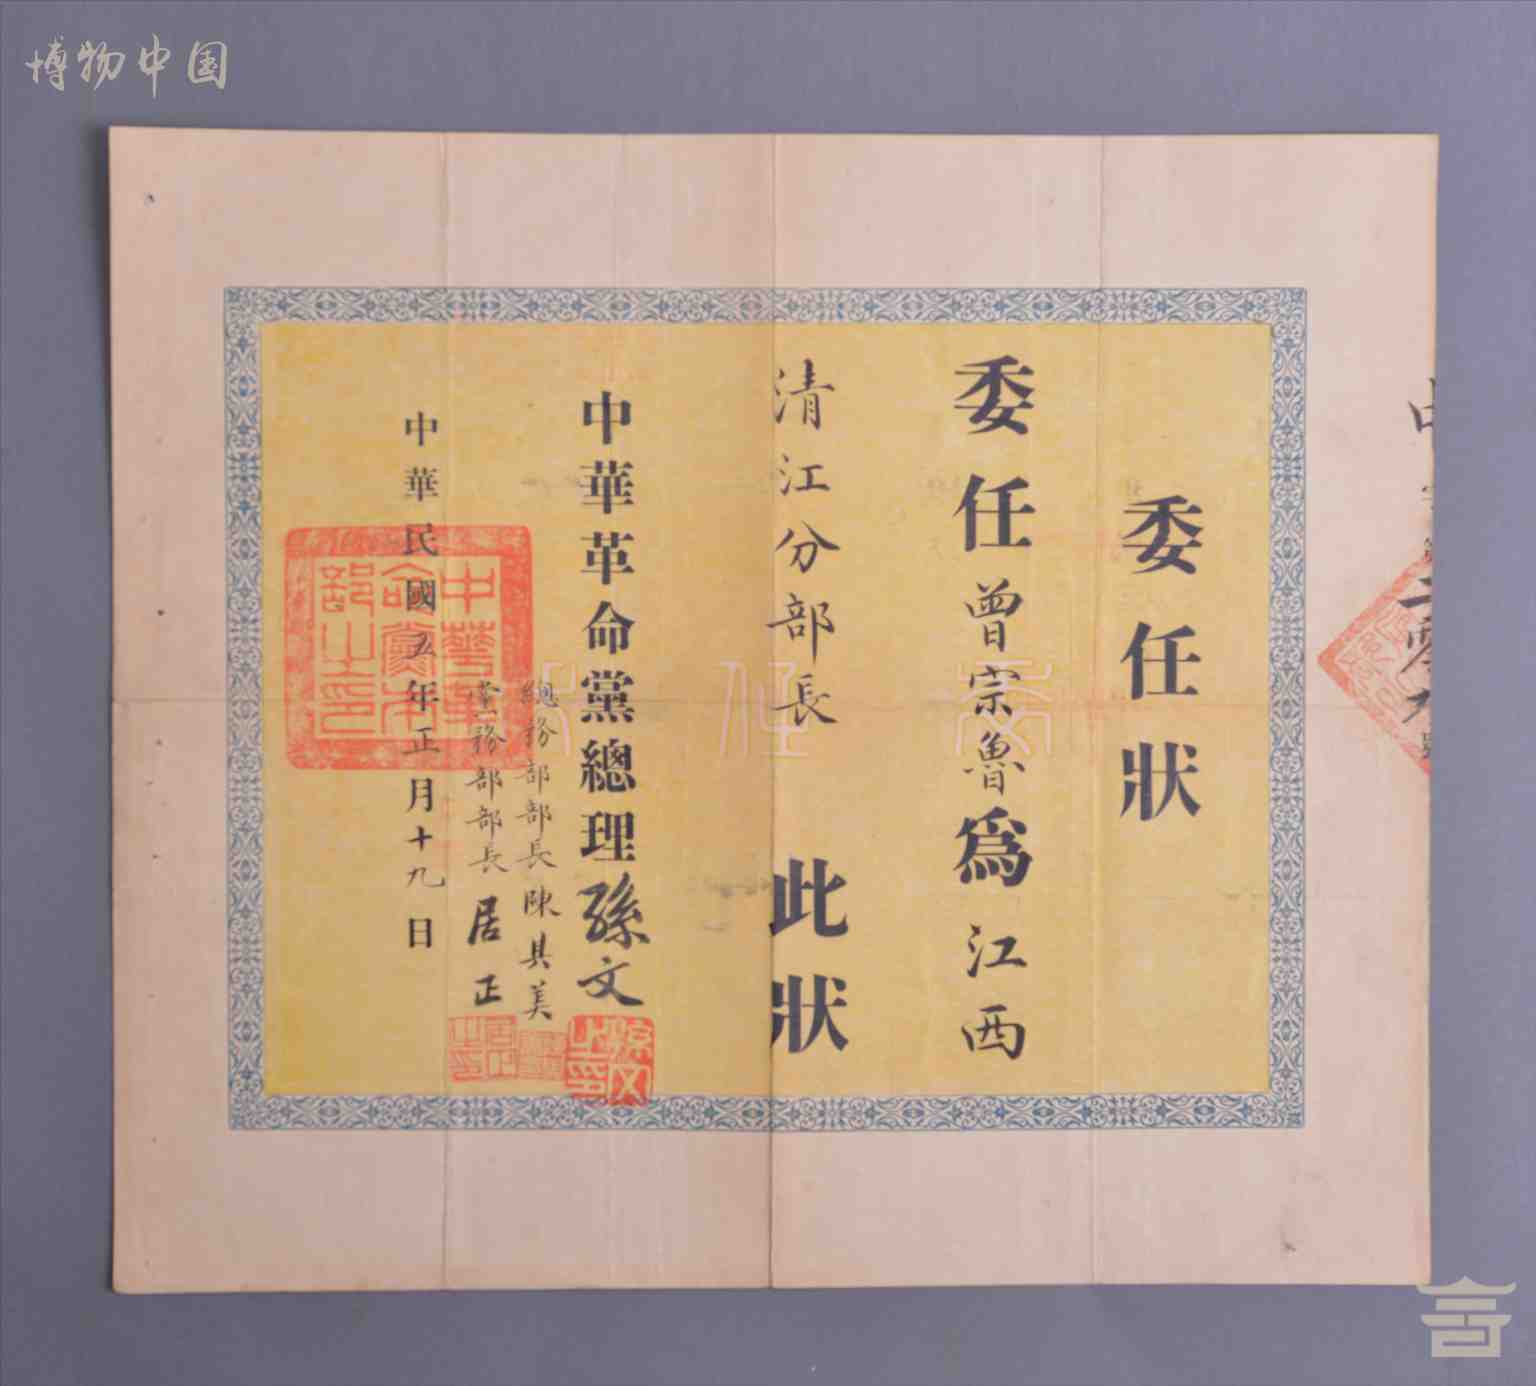 博物中国
委任狀
委任曾宗魯為江西
清江分部長 此狀
中華革命黨總理孫文
總務部部長陳其美
黨務部部長居正
中華民國五年正月十九日
中華革命黨本部之印
孫文之印
居正之印
委任狀